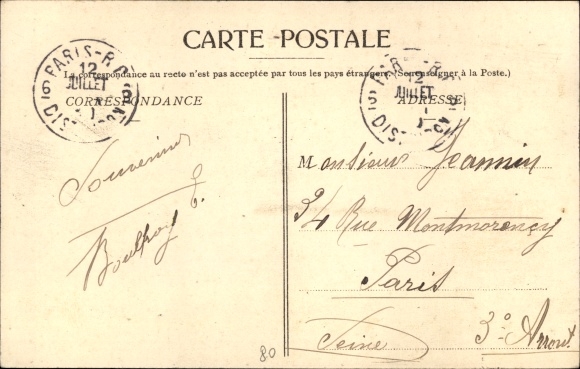 CARTE POSTALE
La correspondance au recto n'est pas acceptée par tous les pays étrangers. (Se renseigner à la Poste.)
CORRESPONDANCE
ADRESSE
PARIS-R.P.
12
JUILLET
DIS
PARIS-R.P.
12
JUILLET
DIS
Souvenir
Monsieur Jeannin
34 Rue Montmorency
Paris
Seine 3º Arront
80